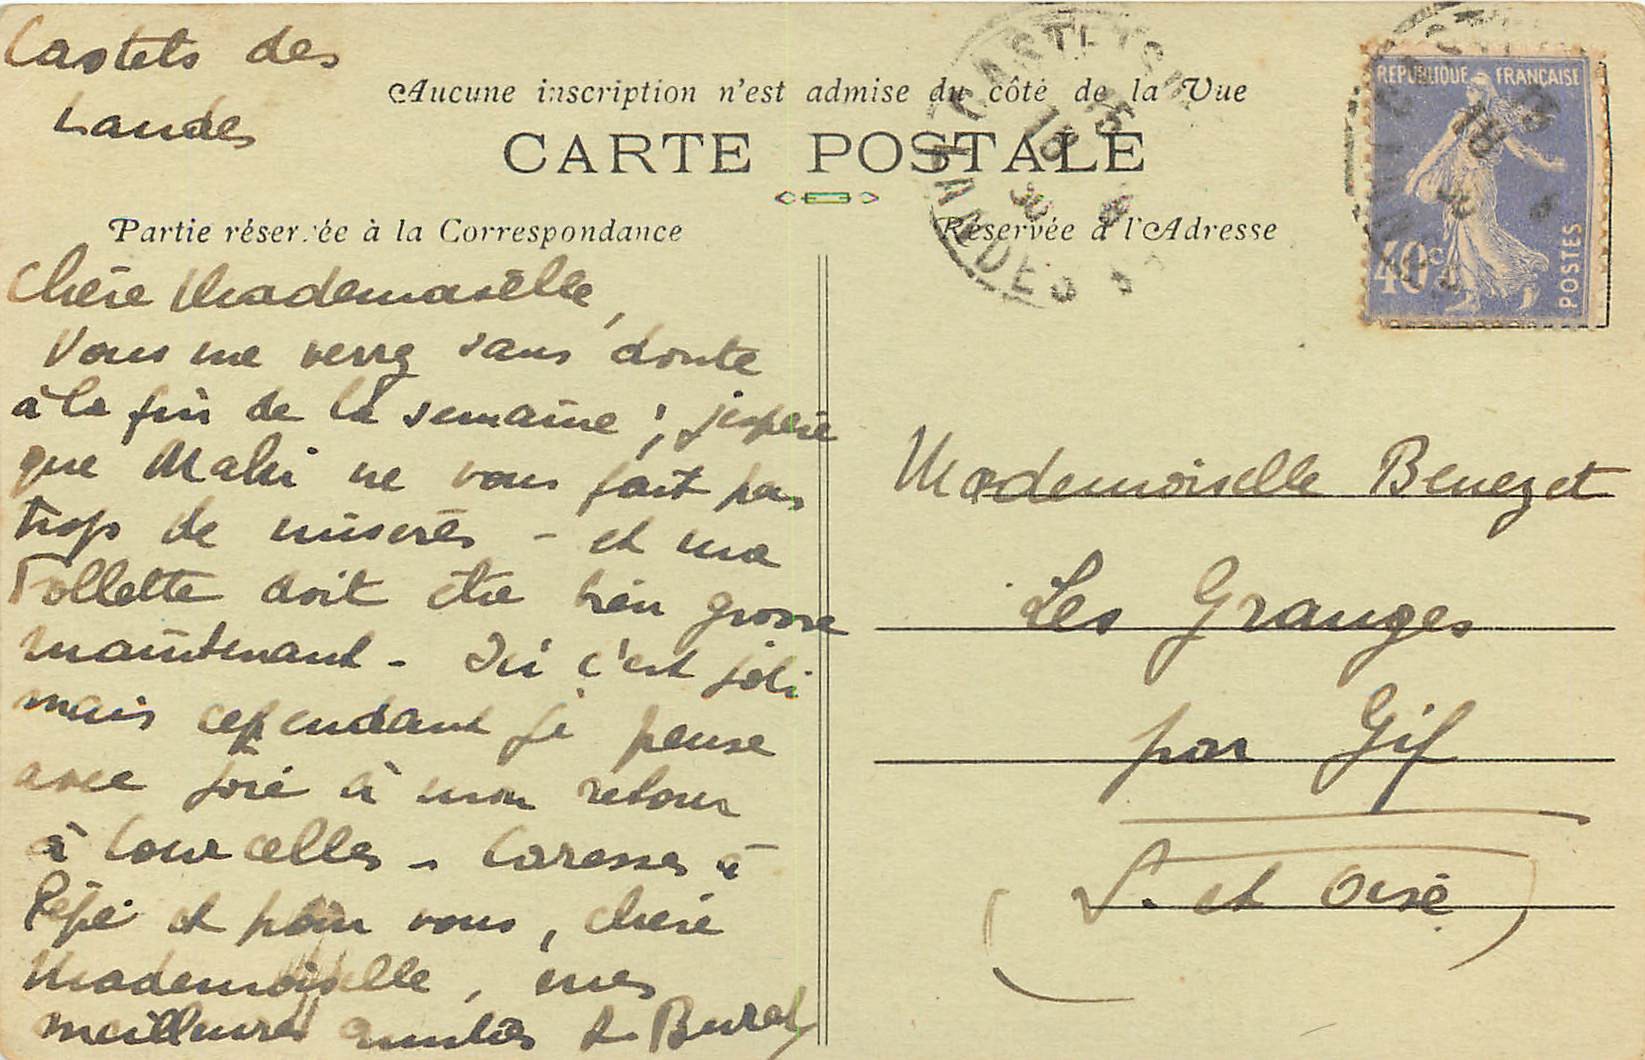 Castets des
Landes
Aucune inscription n'est admise du côté de la Vue
CARTE POSTALE
Partie réservée à la Correspondance
Réservée à l'Adresse
REPUBLIQUE FRANÇAISE
40c
POSTES
LANDES
Chère Mademoiselle,
Vous me verrez sans doute
à la fin de la semaine ; j'espère
que Maki ne vous fait pas
trop de misères - et ma
Follette doit être bien grosse
maintenant - Ici c'est joli
mais cependant je pense
avec joie à mon retour
à Courcelles - Caresses à
Pépé et pour vous, chère
Mademoiselle, mes
meilleures amitiés
Mademoiselle Benezet
Les Granges
par Gif
(S. et Oise)